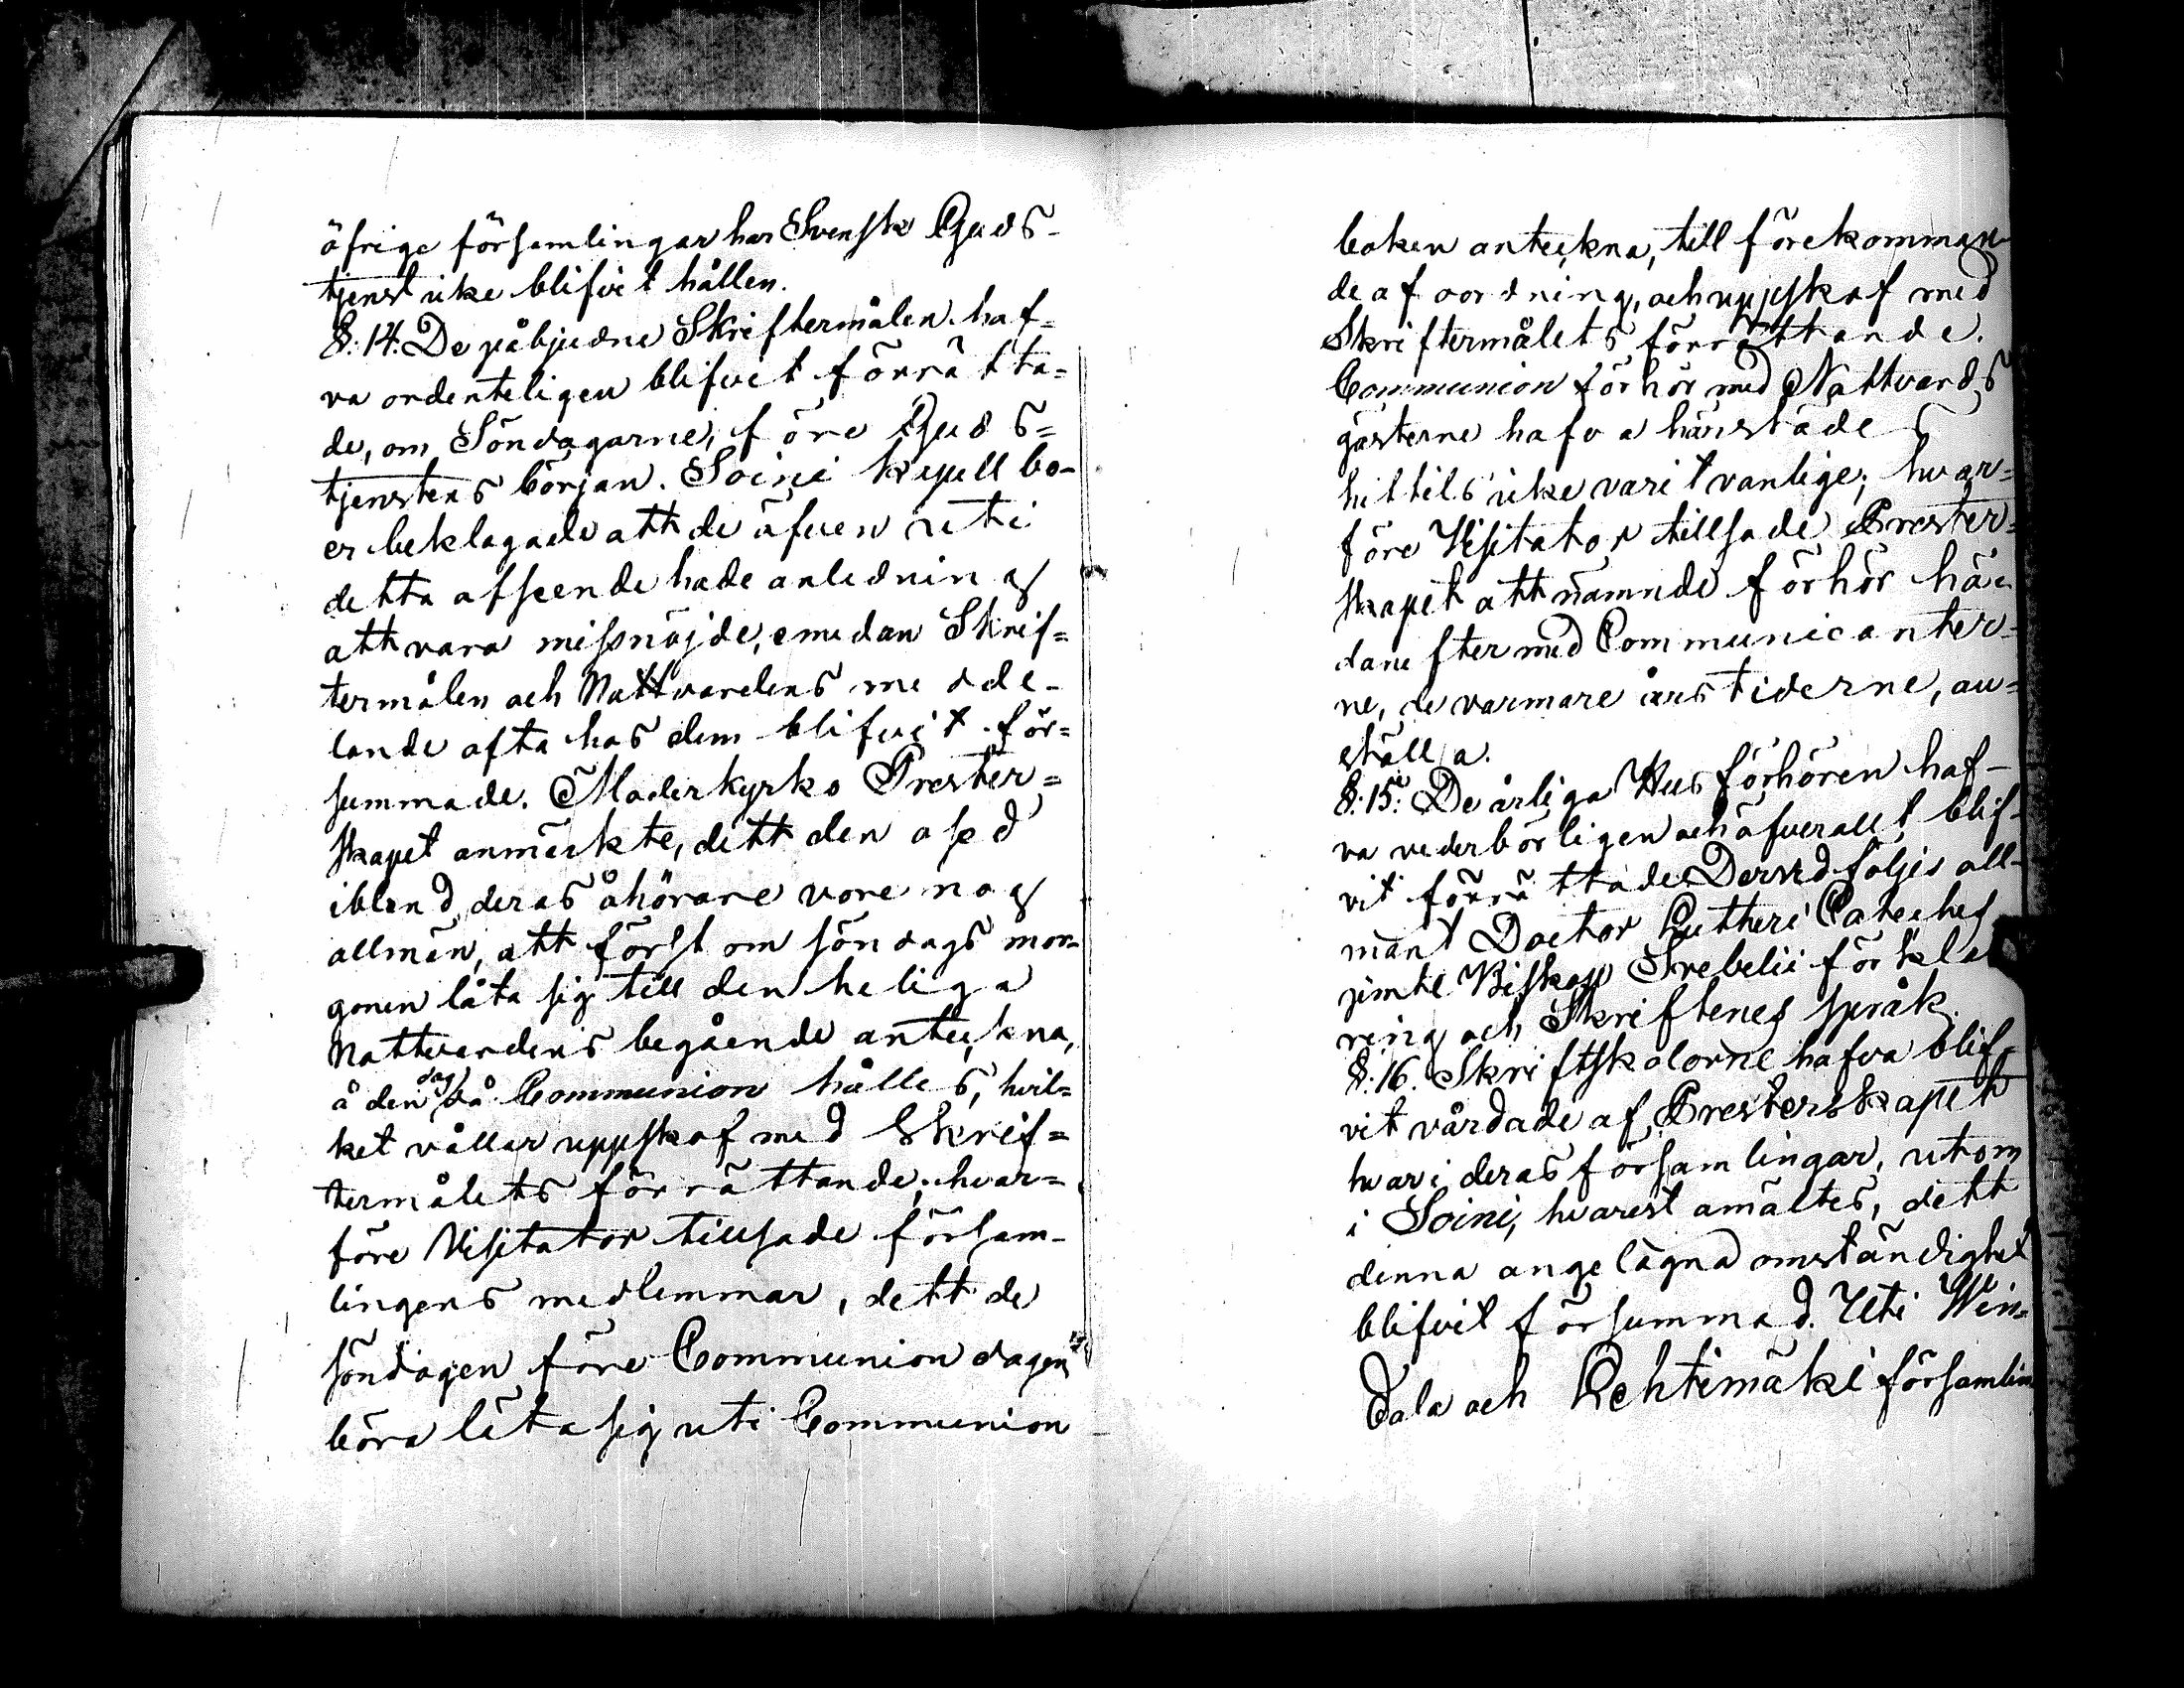 öfrige församlingar har Svensk Guds-
tjenst icke blifvit hållen.
§. 14. De påbjudne Skriftermålen haf=
va ordenteligen blifvit förrätta=
de, om Söndagarne, före Guds=
tjenstens början. Soini kapell bo-
er beklagade att de äfven uti
detta afseende hade anledning
att vara missnöjde, emedan Skrif=
termålen och Nattvardens medde-
lande ofta hos dem blifvit för=
summade. Moderkyrko Prester=
skapet anmärkte, dett den osed
ibland deras åhörare vore nog
allmän, att först om söndags mor-
gonen låta sig till den heliga
Nattvardens begående anteckna,
å den dag då Communion hålles, hvil=
ket vållar uppskof med Skrif=
termålets förrättande; hvar=
före Visitator tillsade försam-
lingens medlemmar, dett de
söndagen före Communion dagen
böra låta sig uti Communion
boken anteckna, till förekomman
de af oordning, och uppskof med
Skriftermålets förrättande.
Communion förhör med Nattvards
gästerne hafva härstädes
hittils icke varit vanlige; hvar=
före Visitator tillsade Prester=
skapet att nämnde förhör här
danefter med Communicanter=
ne, de varmare årstiderne, an=
ställa.
§. 15. De årliga Husförhören haf-
va vederbörligen och öfverallt blif-
vit förrättade. Dervid följes all-
mänt Doctor Lutheri Cateches
jemte Biskop Svebelii förkla
ring och Skriftenes språk.
§. 16. Skriftskolorne hafva blif-
vit vårdade af Presterskapet
hvar i deras församlingar, utom
i Soini, hvarest anmältes, dett
denna angelägna omständighet
blifvit försummad. Uti Win=
dala och Lehtimäki församlin